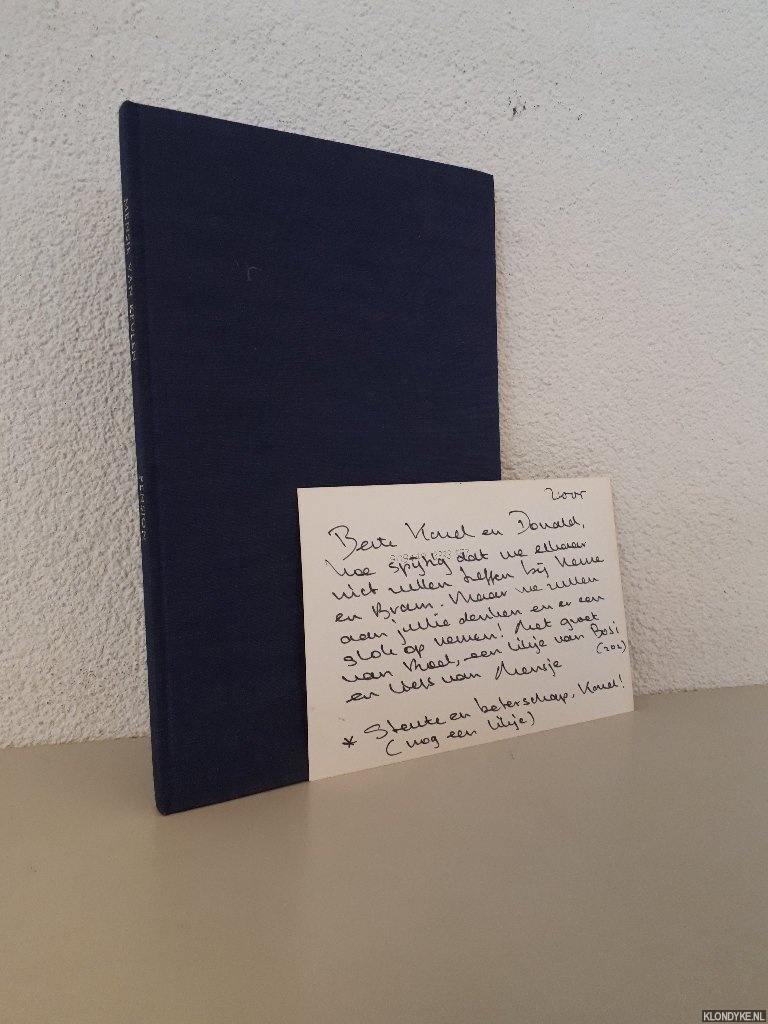 MENSJE VAN KEULEN
PENSION
2 nov
Beste Karel en Donald,
hoe spijtig dat we elkaar
niet zullen treffen bij Hanna
en Bram. Maar we zullen
aan jullie denken en er een
glok op nemen! Met groet
van Thool, een likje van Bosi
(202)
en liefs van Mensje
* Sterkte en beterschap, Karel!
(nog een likje)
KLONDYKE.NL